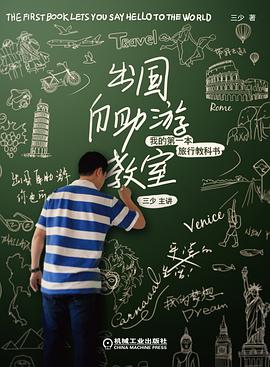 THE FIRST BOOK LETS YOU SAY HELLO TO THE WORLD
三少 著
Travel
出国
自助游
教室
我的第一本
旅行教科书
三少 主讲
Rome
Venice
Carnaval
我的梦想
Dream
机械工业出版社
CHINA MACHINE PRESS